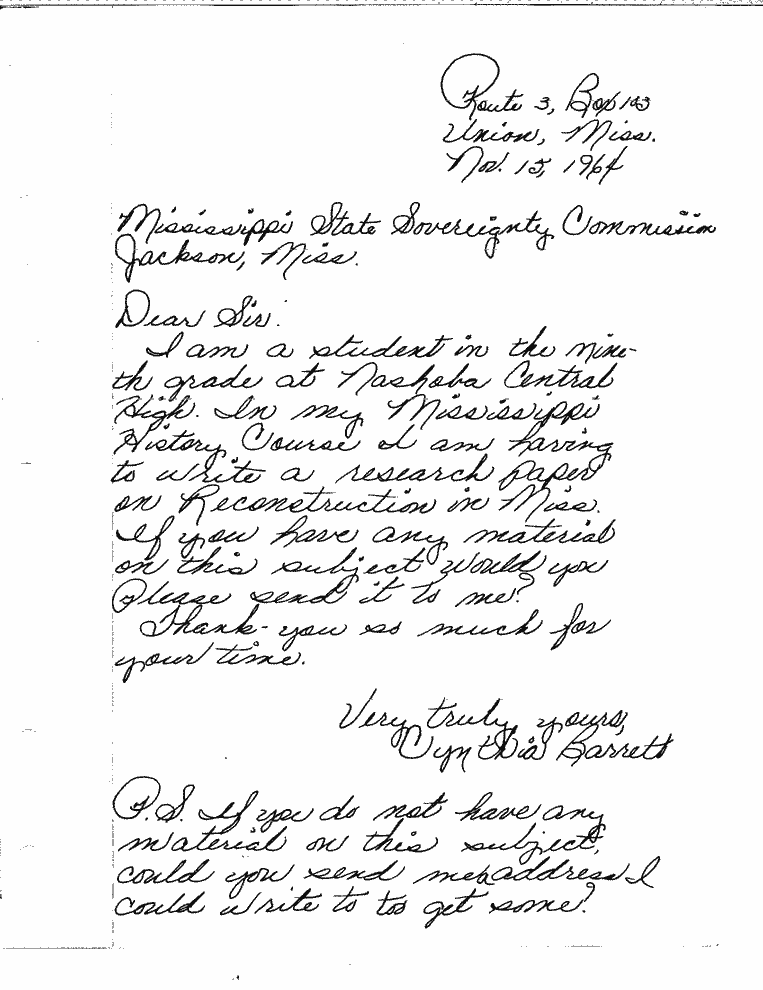 Route 3, Box 143
Union, Miss.
Nov. 15, 1964
Mississippi State Sovereignty Commission
Jackson, Miss.
Dear Sir:
I am a student in the nine-
th grade at Neshoba Central
High. In my Mississippi
History Course I am having
to write a research paper
on Reconstruction in Miss.
If you have any material
on this subject would you
please send it to me?
Thank-you so much for
your time.
Very truly yours,
Cynthia Barrett
P.S. If you do not have any
material on this subject,
could you send me address I
could write to to get some?